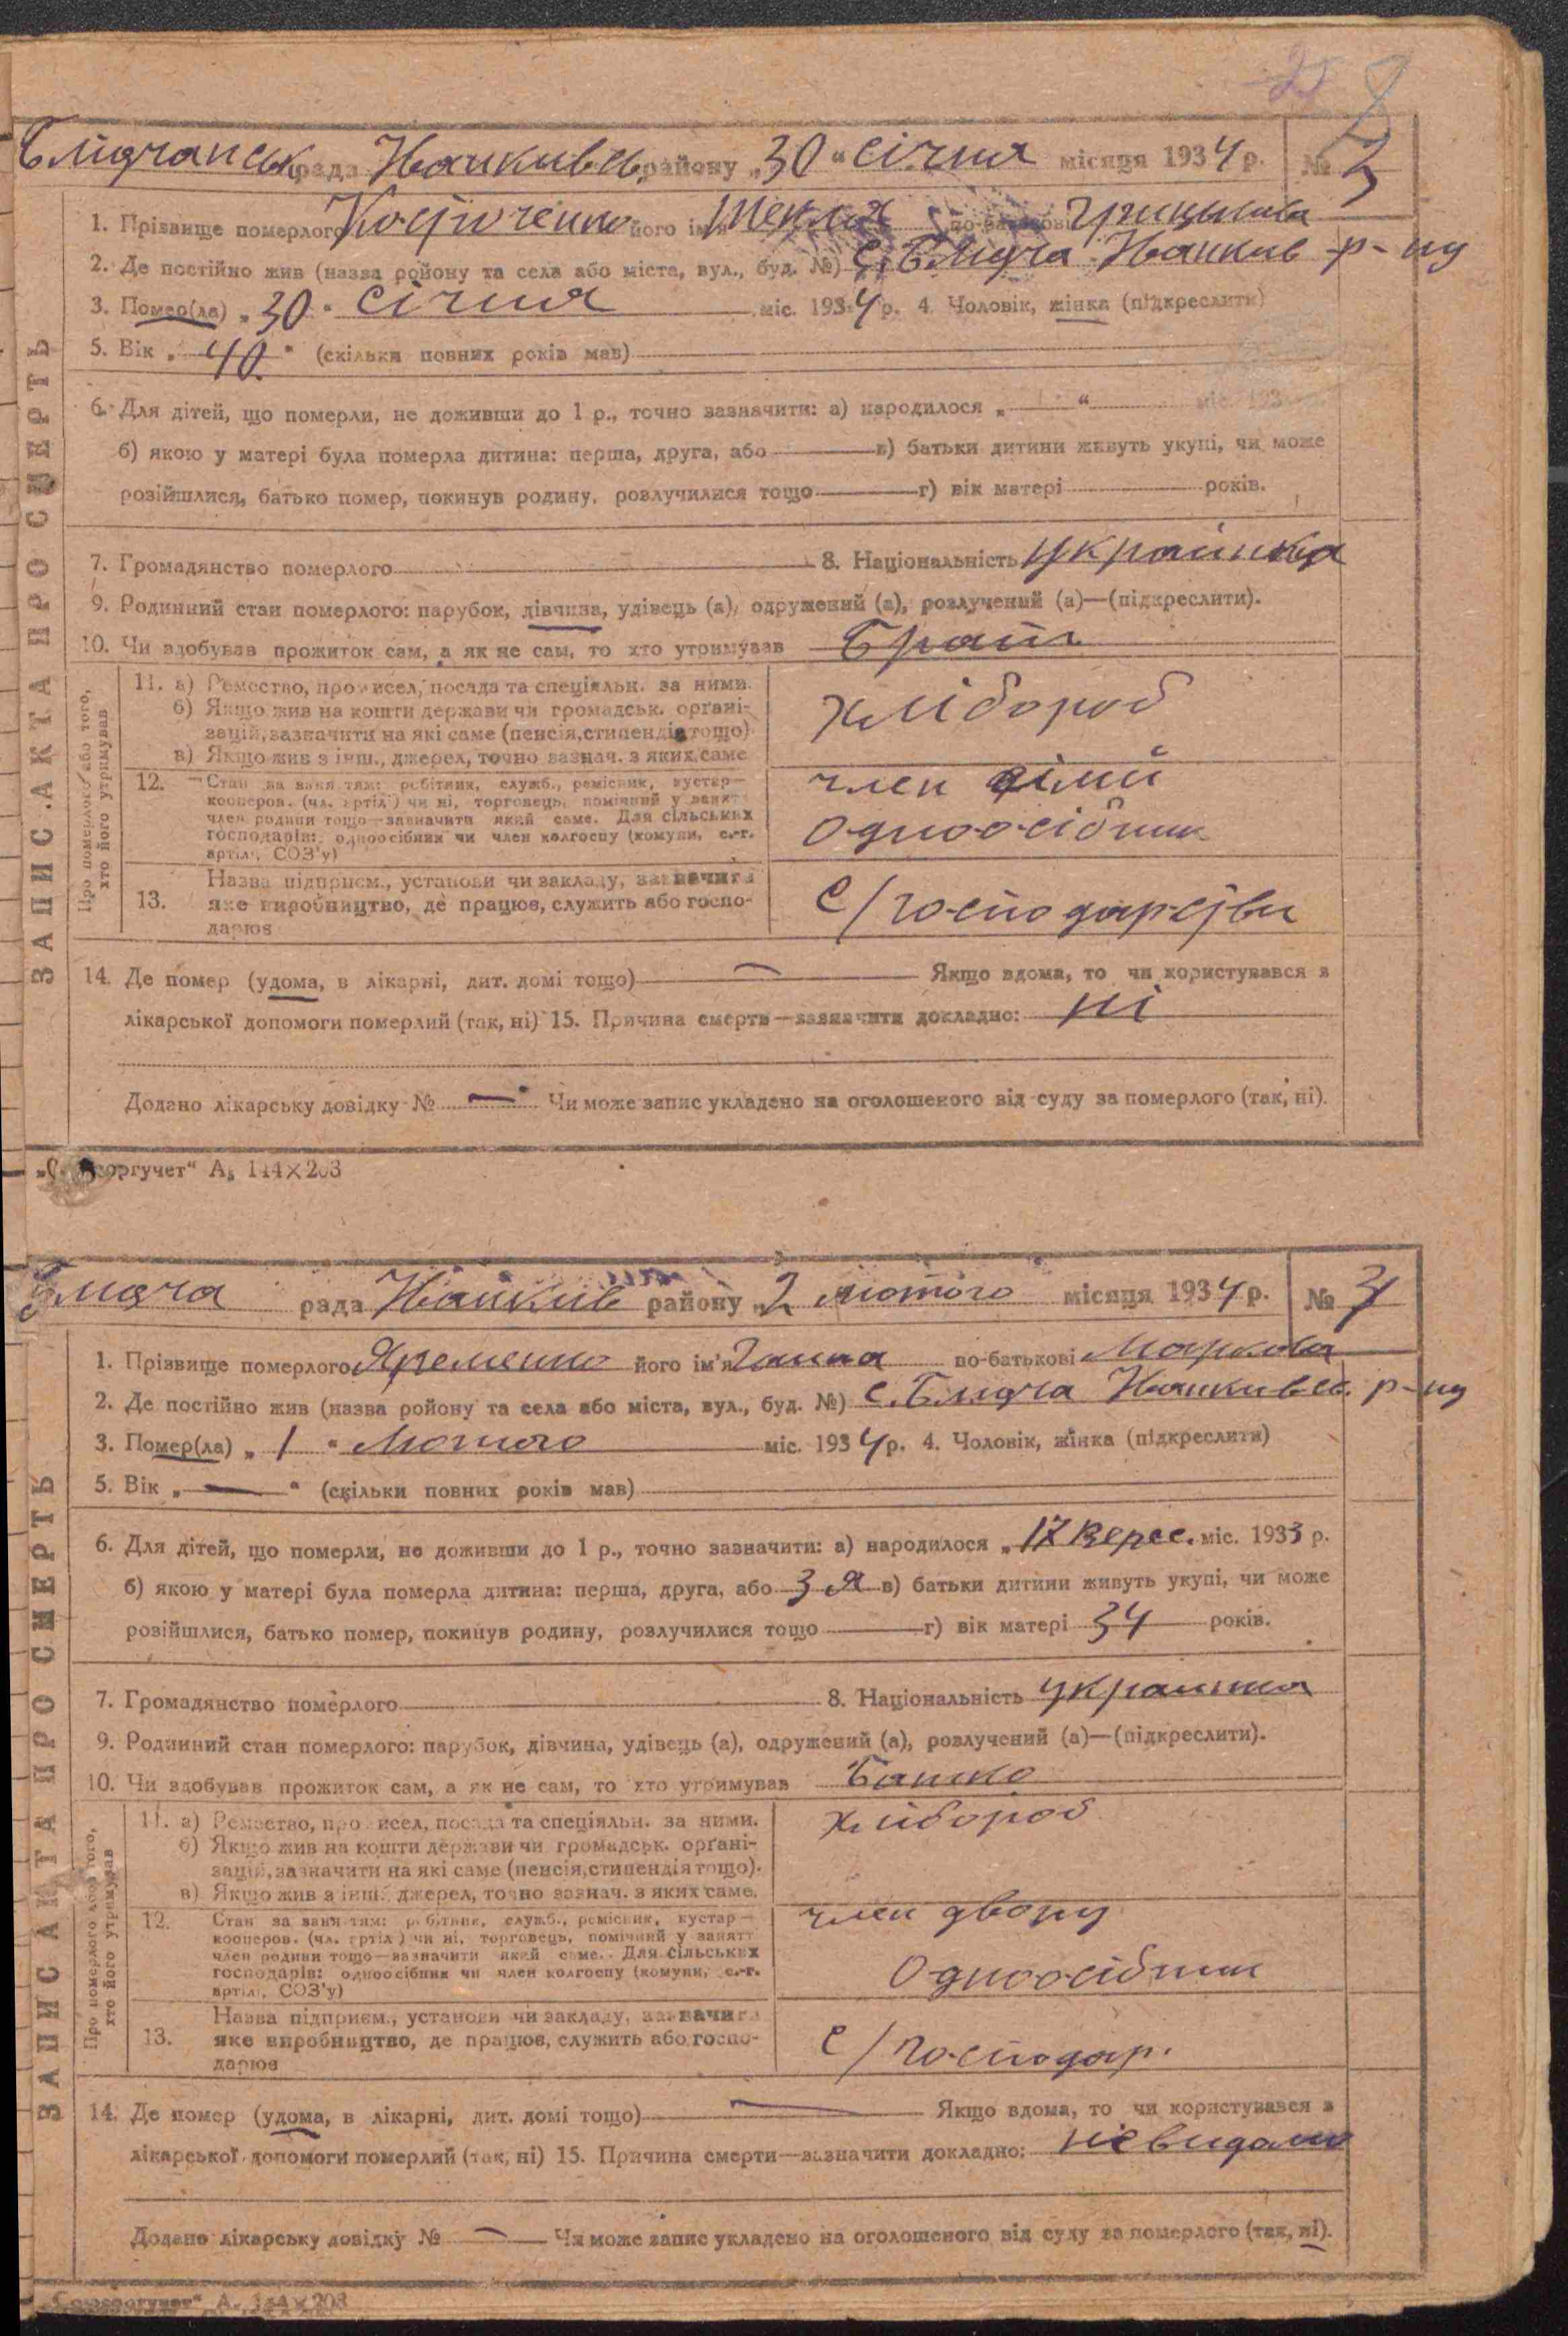 Блидчанськ рада Іванківськ. району „30“ січня місяця 1934 р. № 3
1. Прізвище померлого Костюченко його ім'я Текля по-батькові Грицькова
2. Де постійно жив (назва ройону та села або міста, вул., буд. №) с. Блидча Іванків р-ну
3. Помер(ла) „30“ січня міс. 1934 р. 4. Чоловік, жінка (підкреслити)
5. Вік „40“ (скільки повних років мав)
6. Для дітей, що померли, не доживши до 1 р., точно зазначити: а) народилося „ “ міс. 193
б) якою у матері була померла дитина: перша, друга, або в) батьки дитини живуть укупі, чи може
розійшлися, батько помер, покинув родину, розлучилися тощо г) вік матері років.
7. Громадянство померлого 8. Національність українка
9. Родинний стан померлого: парубок, дівчина, удівець (а), одружений (а), розлучений (а)—(підкреслити).
10. Чи здобував прожиток сам, а як не сам, то хто утримував Брат
ЗАПИС АКТА ПРО СМЕРТЬ
Про померлого або того, хто його утримував
11. а) Ремество, промисел, посада та спеціяльн. за ними.
б) Якщо жив на кошти держави чи громадськ. органі-
зацій, зазначити на які саме (пенсія, стипендія тощо)
в) Якщо жив з інш., джерел, точно зазнач. з яких саме
хлібороб
12. Стан за заняттям: робітник, служб., ремісник, кустар—
кооперов. (чл. артілі) чи ні, торговець, помічний у занятт
член родини тощо—зазначити який саме. Для сільських
господарів: одноосібник чи член колгоспу (комуни, с.-г.
артілі, СОЗ'у)
член сімї
одноосібник
Назва підприєм., установи чи закладу, зазначити
13. яке виробництво, де працює, служить або госпо-
дарює
с/господарстви
14. Де помер (удома, в лікарні, дит. домі тощо) — Якщо вдома, то чи користувався з
лікарської допомоги померлий (так, ні) 15. Причина смерти—зазначити докладно: ні
Додано лікарську довідку № — Чи може запис укладено на оголошеного від суду за померлого (так, ні).
оргучет“ А₅ 144×203
Блидча рада Іванків району „2 лютого місяця 1934 р. № 3
1. Прізвище померлого Яременко його ім'я Ганна по-батькові Маркова
2. Де постійно жив (назва ройону та села або міста, вул., буд. №) с. Блидча Іванківськ. р-ну
3. Помер(ла) „1“ Лютого міс. 1934 р. 4. Чоловік, жінка (підкреслити)
5. Вік „—“ (скільки повних років мав)
6. Для дітей, що померли, не доживши до 1 р., точно зазначити: а) народилося „17 Верес. міс. 1933 р.
б) якою у матері була померла дитина: перша, друга, або 3 я в) батьки дитини живуть укупі, чи може
розійшлися, батько помер, покинув родину, розлучилися тощо г) вік матері 34 років.
7. Громадянство померлого 8. Національність українка
9. Родинний стан померлого: парубок, дівчина, удівець (а), одружений (а), розлучений (а)—(підкреслити).
10. Чи здобував прожиток сам, а як не сам, то хто утримував Батько
ЗАПИС АКТА ПРО СМЕРТЬ
Про померлого або того, хто його утримував
11. а) Ремество, промисел, посада та спеціяльн. за ними.
б) Якщо жив на кошти держави чи громадськ. органі-
зацій, зазначити на які саме (пенсія, стипендія тощо).
в) Якщо жив з інш. джерел, точно зазнач. з яких саме.
хлібороб
12. Стан за заняттям: робітник, служб., ремісник, кустар—
кооперов. (чл. артілі) чи ні, торговець, помічний у занятт
член родини тощо—зазначити який саме. Для сільських
господарів: одноосібник чи член колгоспу (комуни, с.-г.
артілі, СОЗ'у)
член двору
Одноосібник
Назва підприєм., установи чи закладу, зазначити
13. яке виробництво, де працює, служить або госпо-
дарює
с/господар.
14. Де помер (удома, в лікарні, дит. домі тощо) — Якщо вдома, то чи користувався з
лікарської допомоги померлий (так, ні) 15. Причина смерти—зазначити докладно: невидомо
Додано лікарську довідку № — Чи може запис укладено на оголошеного від суду за померлого (так, ні).
„Союзоргучет“ А₅ 144×203